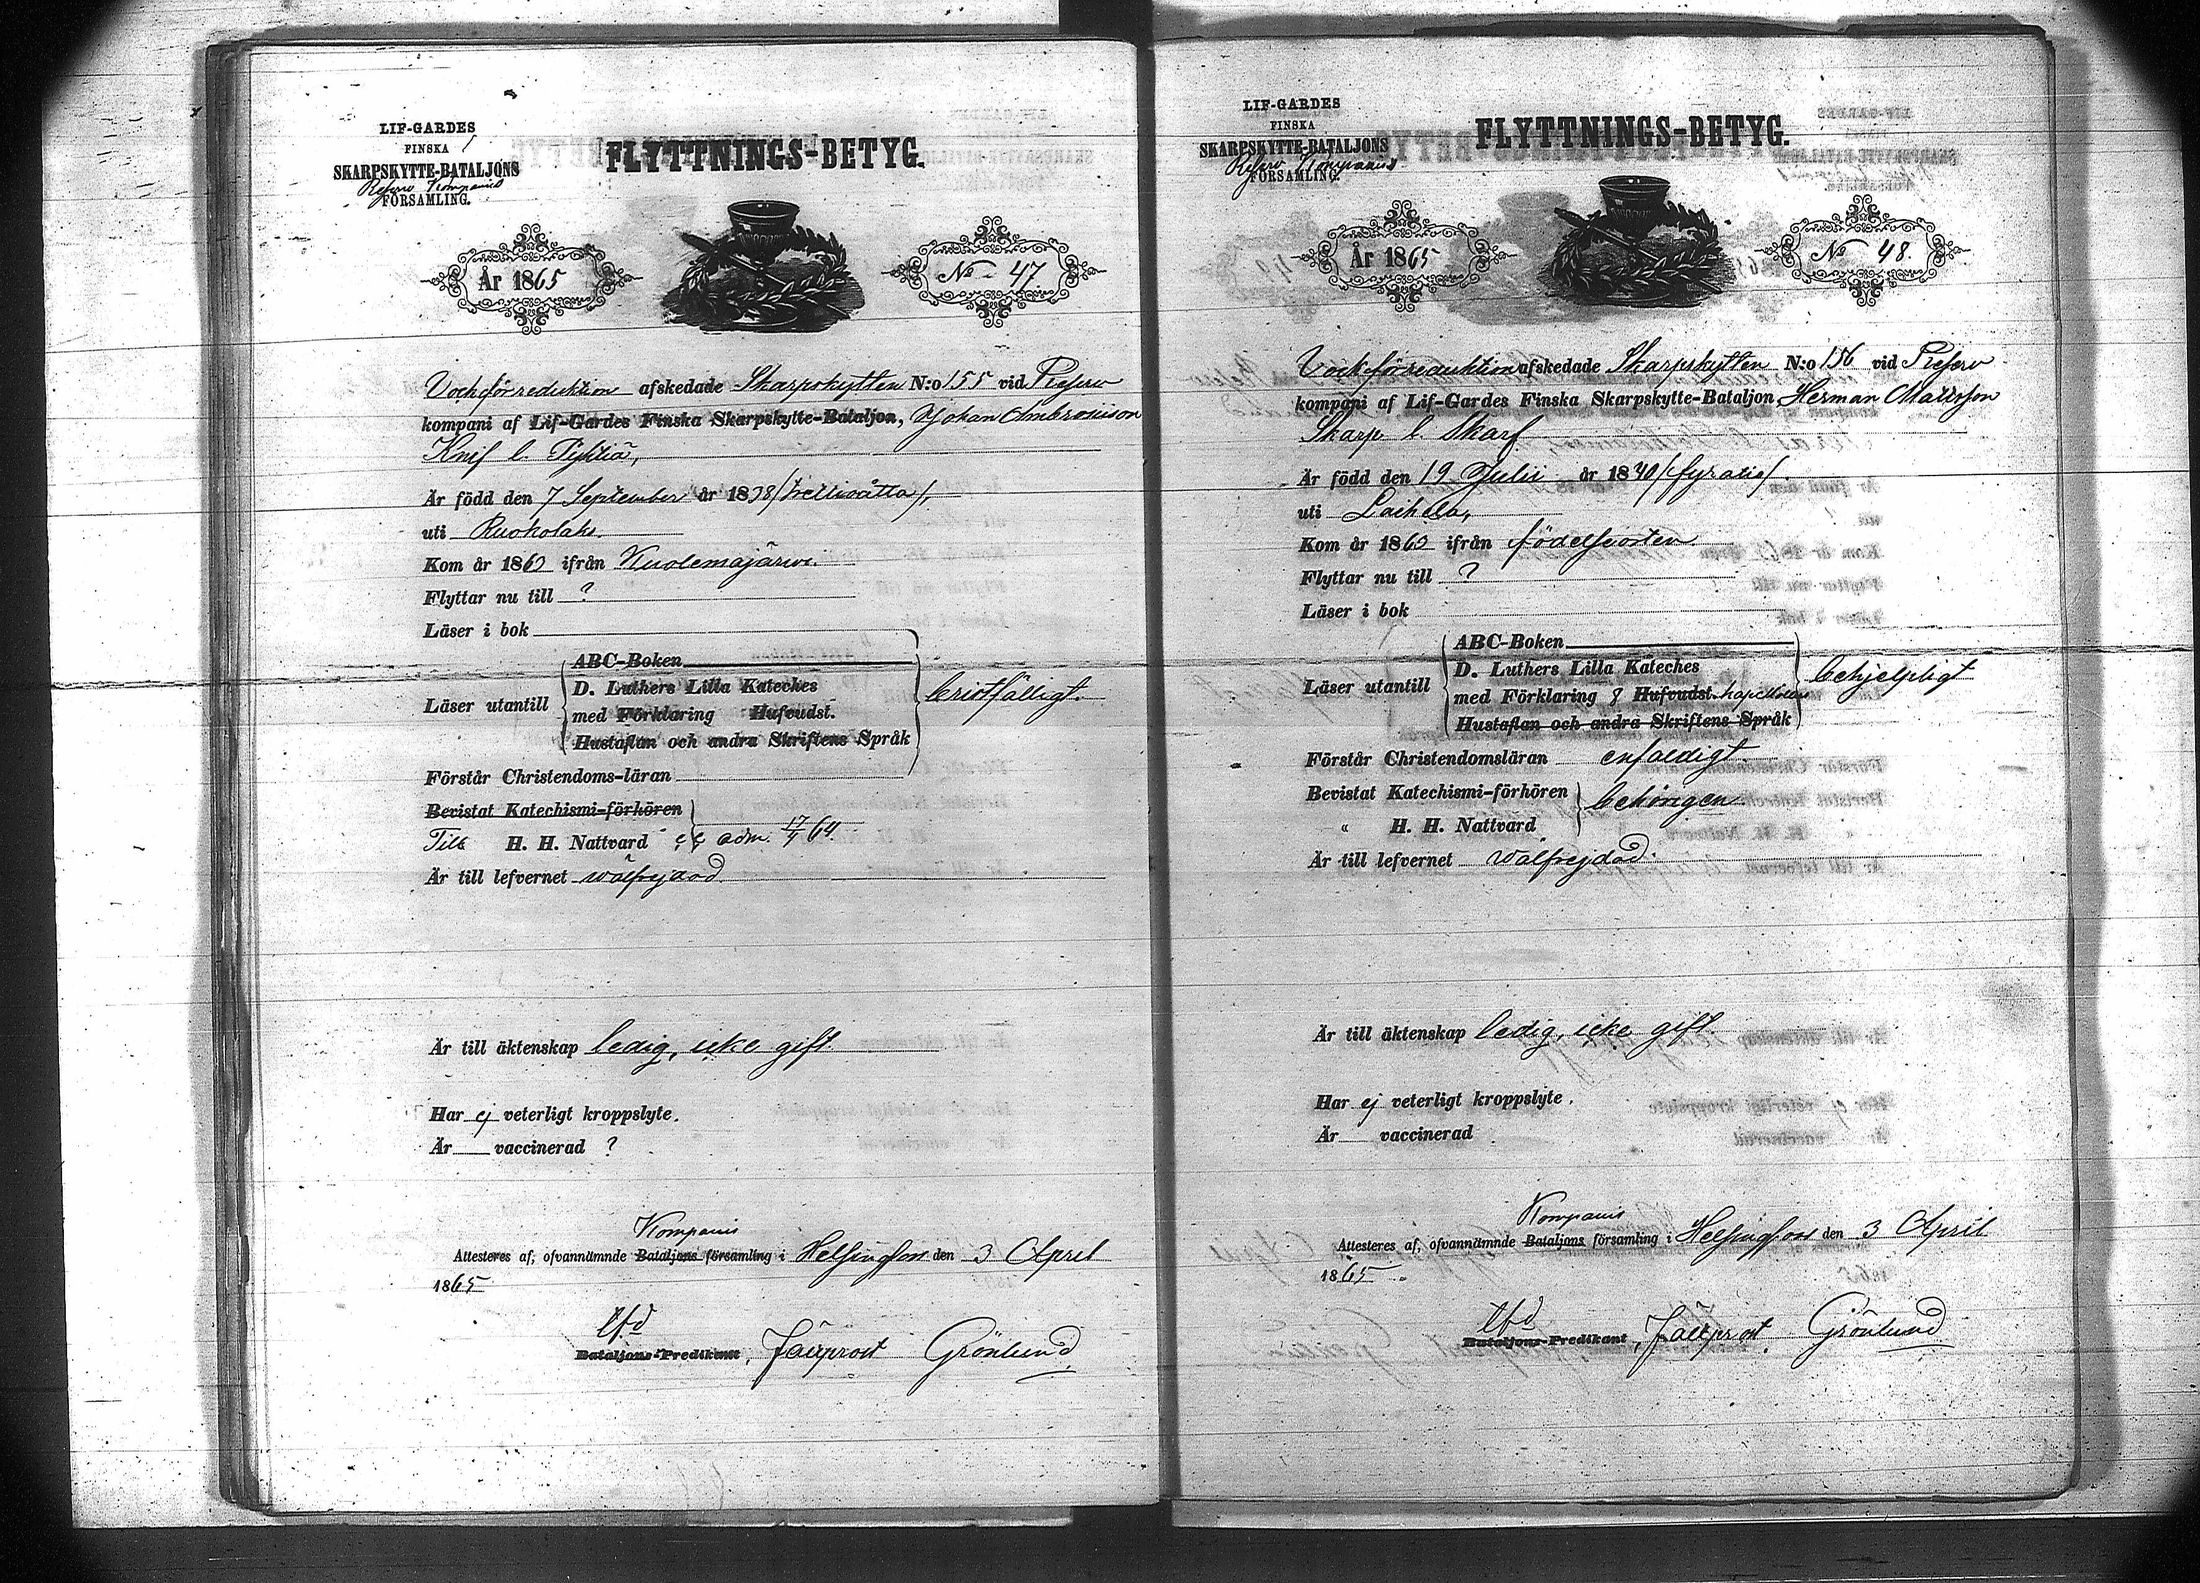 LIF-GARDES
FINSKA
SKARPSKYTTE-BATALJONS
Reserv Kompanis
FÖRSAMLING.
FLYTTNINGS-BETYG.
År 1865
No 47
afskedade Skarpskytten N:o 155 vid Reserv
kompani af Lif-Gardes Finska Skarpskytte-Bataljon, Johan Ambrosiison
Knif l. Pyktiä,
Är född den 7 September år 1838 /trettioåtta/,
uti Ruokolaks.
Kom år 1860 ifrån Kuolemajärvi.
Flyttar nu till ?
Läser i bok
Läser utantill
ABC-Boken
D. Luthers Lilla Kateches
med Förklaring Hufvudst.
Hustaflan och andra Skriftens Språk
bristfälligt.
Förstår Christendoms-läran
Bevistat Katechismi-förhören
Till H. H. Nattvard adm. 17/4 64.
Är till lefvernet wälfrejdad.
Är till äktenskap ledig, icke gift.
Har ej veterligt kroppslyte.
Är vaccinerad ?
Kompanis
Attesteres af, ofvannämnde Bataljons församling i Helsingfors den 3 April
1865
Bataljons-Predikant, Fältprost Grönlund
LIF-GARDES
FINSKA
SKARPSKYTTE-BATALJONS
Reserv Kompanis
FÖRSAMLING.
FLYTTNINGS-BETYG.
År 1865
No 48.
afskedade Skarpskytten N:o 156 vid Reserv
kompani af Lif-Gardes Finska Skarpskytte-Bataljon, Herman Mattsson
Skarp l. Skarf.
Är född den 19 Julii år 1840 /fyratio/.
uti Laihela,
Kom år 1860 ifrån födelseorten.
Flyttar nu till ?
Läser i bok
Läser utantill
ABC-Boken
D. Luthers Lilla Kateches
med Förklaring Hufvudst.
Hustaflan och andra Skriftens Språk
behjelpligt
Förstår Christendomsläran enfaldigt.
Bevistat Katechismi-förhören
" H. H. Nattvard
behörigen.
Är till lefvernet wälfrejdad.
Är till äktenskap ledig, icke gift.
Har ej veterligt kroppslyte.
Är vaccinerad
Kompanis
Attesteres af, ofvannämnde Bataljons församling i Helsingfors den 3 April
1865.
Bataljons-Predikant, Fältprost. Grönlund